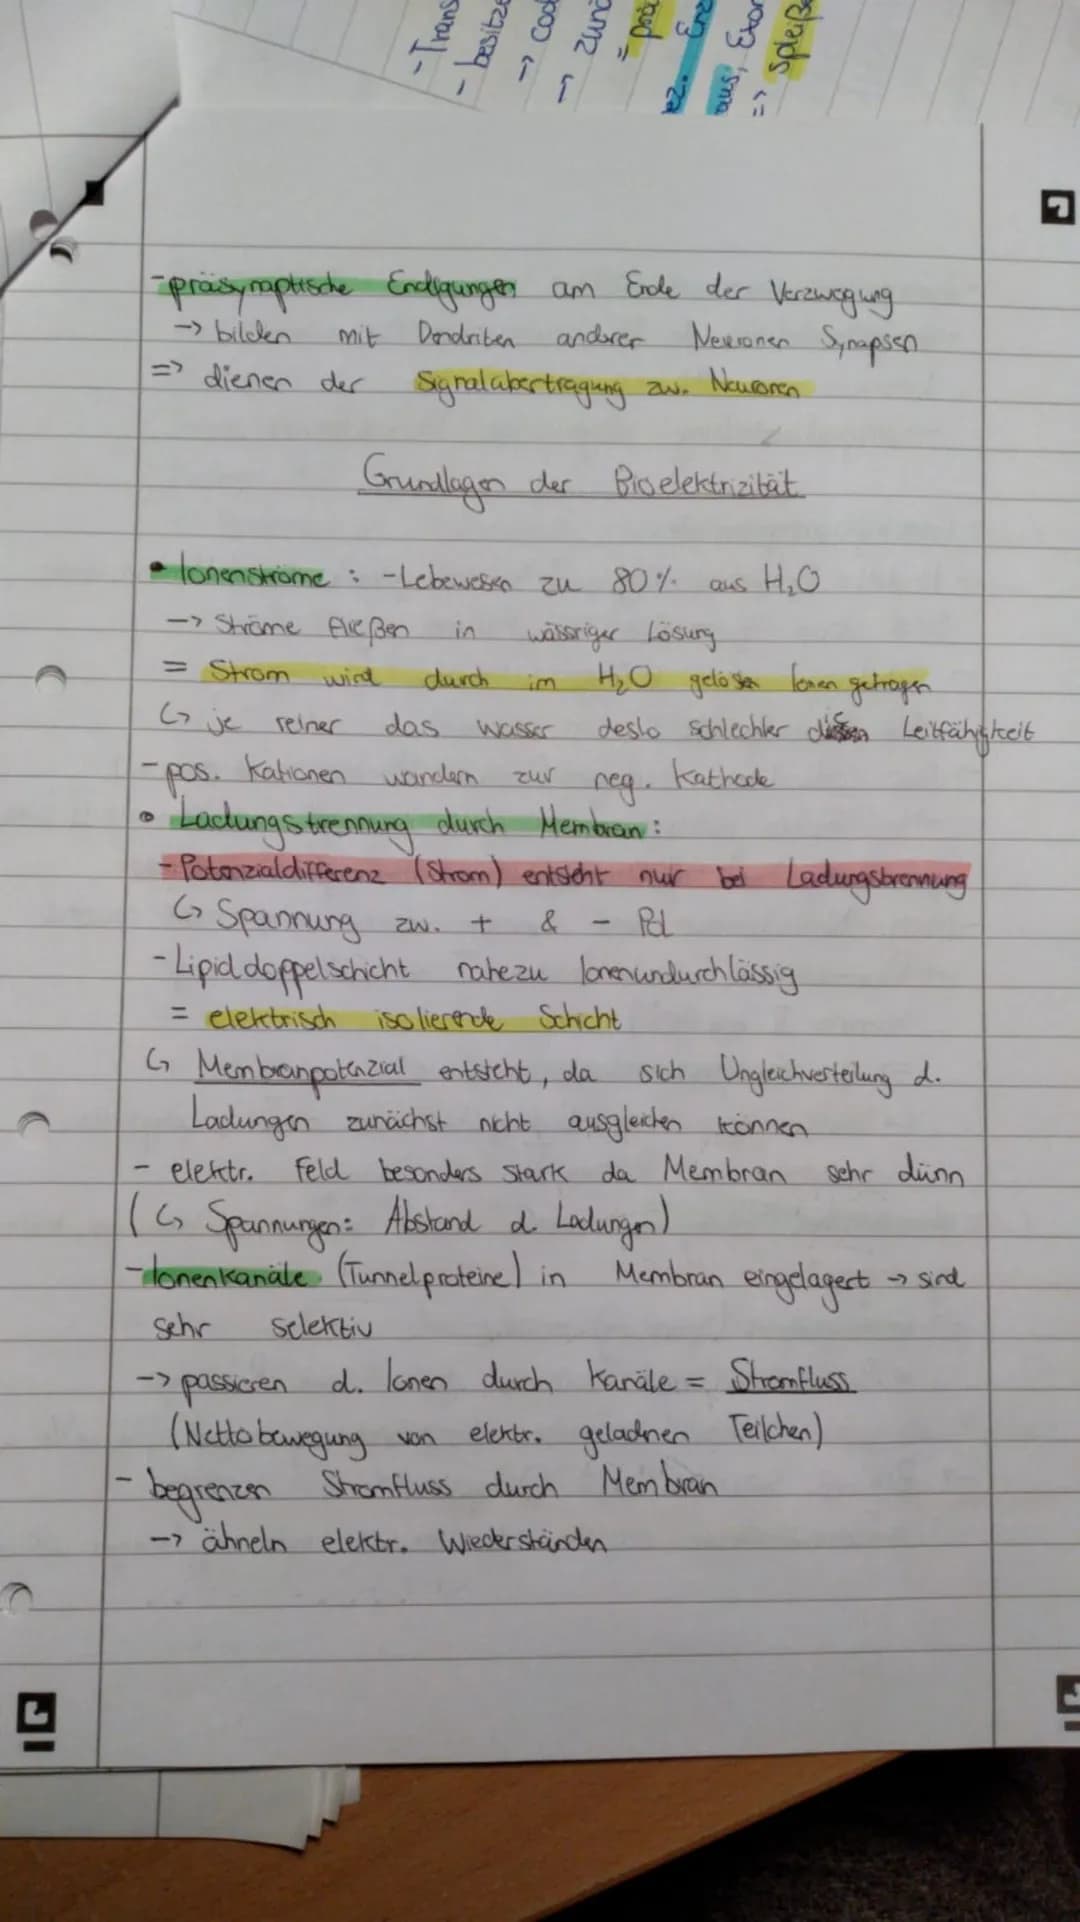 - Trans
- besitze
-> Cod
-> zunä
= prä
ez. Enz
aus, Exon
=> spleiße
- präsynaptische Endigungen am Ende der Verzweigung
-> bilden mit Dendriten anderer Neuronen Synapsen
=> dienen der Signalübertragung zw. Neuronen
Grundlagen der Bioelektrizität
• Ionenströme : - Lebewesen zu 80% aus H₂O
-> Ströme fließen in wässriger Lösung
= Strom wird durch im H₂O gelösten Ionen getragen
↳ je reiner das Wasser desto schlechter Leitfähigkeit
- pos. Kationen wandern zur neg. Kathode
• Ladungstrennung durch Membran :
- Potenzialdifferenz (Strom) entsteht nur bei Ladungstrennung
↳ Spannung zw. + & - Pol
- Lipiddoppelschicht nahezu Ionenundurchlässig
= elektrisch isolierende Schicht
↳ Membranpotenzial entsteht, da sich Ungleichverteilung d.
Ladungen zunächst nicht ausgleichen können
- elektr. Feld besonders stark da Membran sehr dünn
(↳ Spannungen: Abstand d. Ladungen)
- Ionenkanäle (Tunnelproteine) in Membran eingelagert -> sind
sehr selektiv
-> passieren d. Ionen durch Kanäle = Stromfluss
(Nettobewegung von elektr. geladnen Teilchen)
- begrenzen Stromfluss durch Membran
-> ähneln elektr. Wiederständen